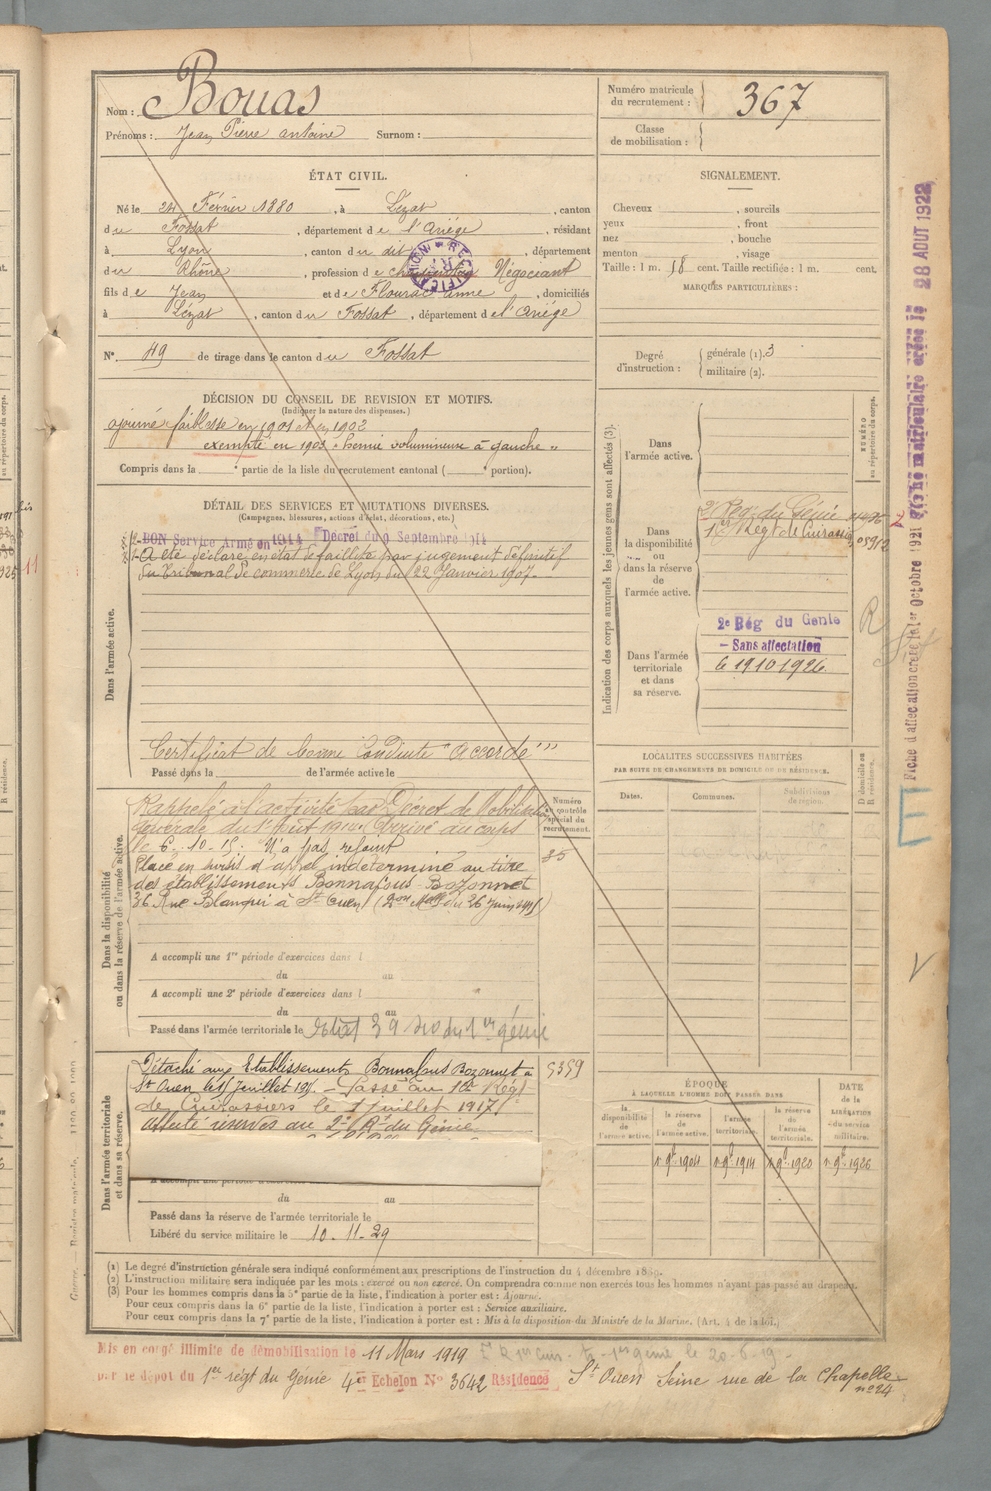 Nom : Bouas
Prénoms : Jean Pierre antoine Surnom :
Numéro matricule du recrutement : 367
Classe de mobilisation :
ÉTAT CIVIL.
Né le 24 Février 1880, à Lézat, canton
du Fossat, département de l'Ariége, résidant
à Lyon, canton du dit, département
du Rhône, profession de Négociant
fils de Jean et de Flourac anne, domiciliés
à Lézat, canton du Fossat, département de l'Ariége
N° 49 de tirage dans le canton du Fossat
SIGNALEMENT.
Cheveux , sourcils
yeux , front
nez , bouche
menton , visage
Taille : 1 m. 58 cent. Taille rectifiée : 1 m. cent.
MARQUES PARTICULIÈRES :
Degré d'instruction : générale (1). 3
militaire (2).
DÉCISION DU CONSEIL DE REVISION ET MOTIFS.
(Indiquer la nature des dispenses.)
ajourné "faiblesse en 1901 et en 1902
exempté en 1903 "hernie volumineuse à gauche"
Compris dans la e partie de la liste du recrutement cantonal ( e portion).
DÉTAIL DES SERVICES ET MUTATIONS DIVERSES.
(Campagnes, blessures, actions d'éclat, décorations, etc.)
BON Service Armé en 1914 Décret du 9 Septembre 1914
A été déclaré en état de faillite par jugement définitif
du Tribunal de commerce de Lyon du 22 Janvier 1907.
Dans l'armée active.
Certificat de bonne Conduite "Accordé"
Passé dans la de l'armée active le
Indication des corps auxquels les jeunes gens sont affectés (3).
NUMÉRO au répertoire du corps.
Dans l'armée active.
Dans la disponibilité ou dans la réserve de l'armée active.
2e Rég. du Génie
1er Régt de Cuirassiers 05912
Dans l'armée territoriale et dans sa réserve.
2e Rég du Génie
Sans affectation
le 19 10 1926
Fiche d'affectation créée le 1er Octobre 1921
Fiche matriculaire créée le 28 AOUT 1922
LOCALITÉS SUCCESSIVES HABITÉES
PAR SUITE DE CHANGEMENTS DE DOMICILE OU DE RÉSIDENCE.
Dates. Communes. Subdivisions de région. D domicile ou R résidence.
Dans la disponibilité ou dans la réserve de l'armée active.
Rappelé à l'activité Décret de Mobilisation
Générale du 1er Août 1914. Arrivé au corps
le 6.10.15. N'a pas rejoint
Placé en sursis d'appel indéterminé au titre
des établissements Bonnafous Bozonnet
36 Rue Blanqui à St Ouen (2on Mlle du 26 juin 1915)
Numéro au contrôle spécial du recrutement.
85
A accompli une 1re période d'exercices dans l
du au
A accompli une 2e période d'exercices dans l
du au
Passé dans l'armée territoriale le
Dans l'armée territoriale et dans sa réserve.
Détaché aux Etablissements Bonnafous Bozonnet à
St Ouen le 11 Juillet 191 . Passé au 1er Régt
de Cuirassiers le 1 juillet 1917
Affecté réserves au 2e Rt du Génie
5359
du au
Passé dans la réserve de l'armée territoriale le
Libéré du service militaire le 10-11-29
ÉPOQUE
À LAQUELLE L'HOMME DOIT PASSER DANS
la disponibilité de l'armée active. la réserve de l'armée active. l'armée territoriale. la réserve de l'armée territoriale.
DATE de la LIBÉRATION du service militaire.
1. 9bre 1904 1. 9bre 1914 1. 9bre 1920 1. 9bre 1926
(1) Le degré d'instruction générale sera indiqué conformément aux prescriptions de l'instruction du 4 décembre 1889.
(2) L'instruction militaire sera indiquée par les mots : exercé ou non exercé. On comprendra comme non exercés tous les hommes n'ayant pas passé au drapeau.
(3) Pour les hommes compris dans la 5e partie de la liste, l'indication à porter est : Ajourné.
Pour ceux compris dans la 6e partie de la liste, l'indication à porter est : Service auxiliaire.
Pour ceux compris dans la 7e partie de la liste, l'indication à porter est : Mis à la disposition du Ministre de la Marine. (Art. 4 de la loi.)
Mis en congé illimité de démobilisation le 11 Mars 1919
par le dépôt du 1er régt du Génie 4e Echelon N° 3642 Résidence St Ouen Seine rue de la Chapelle
n° 24